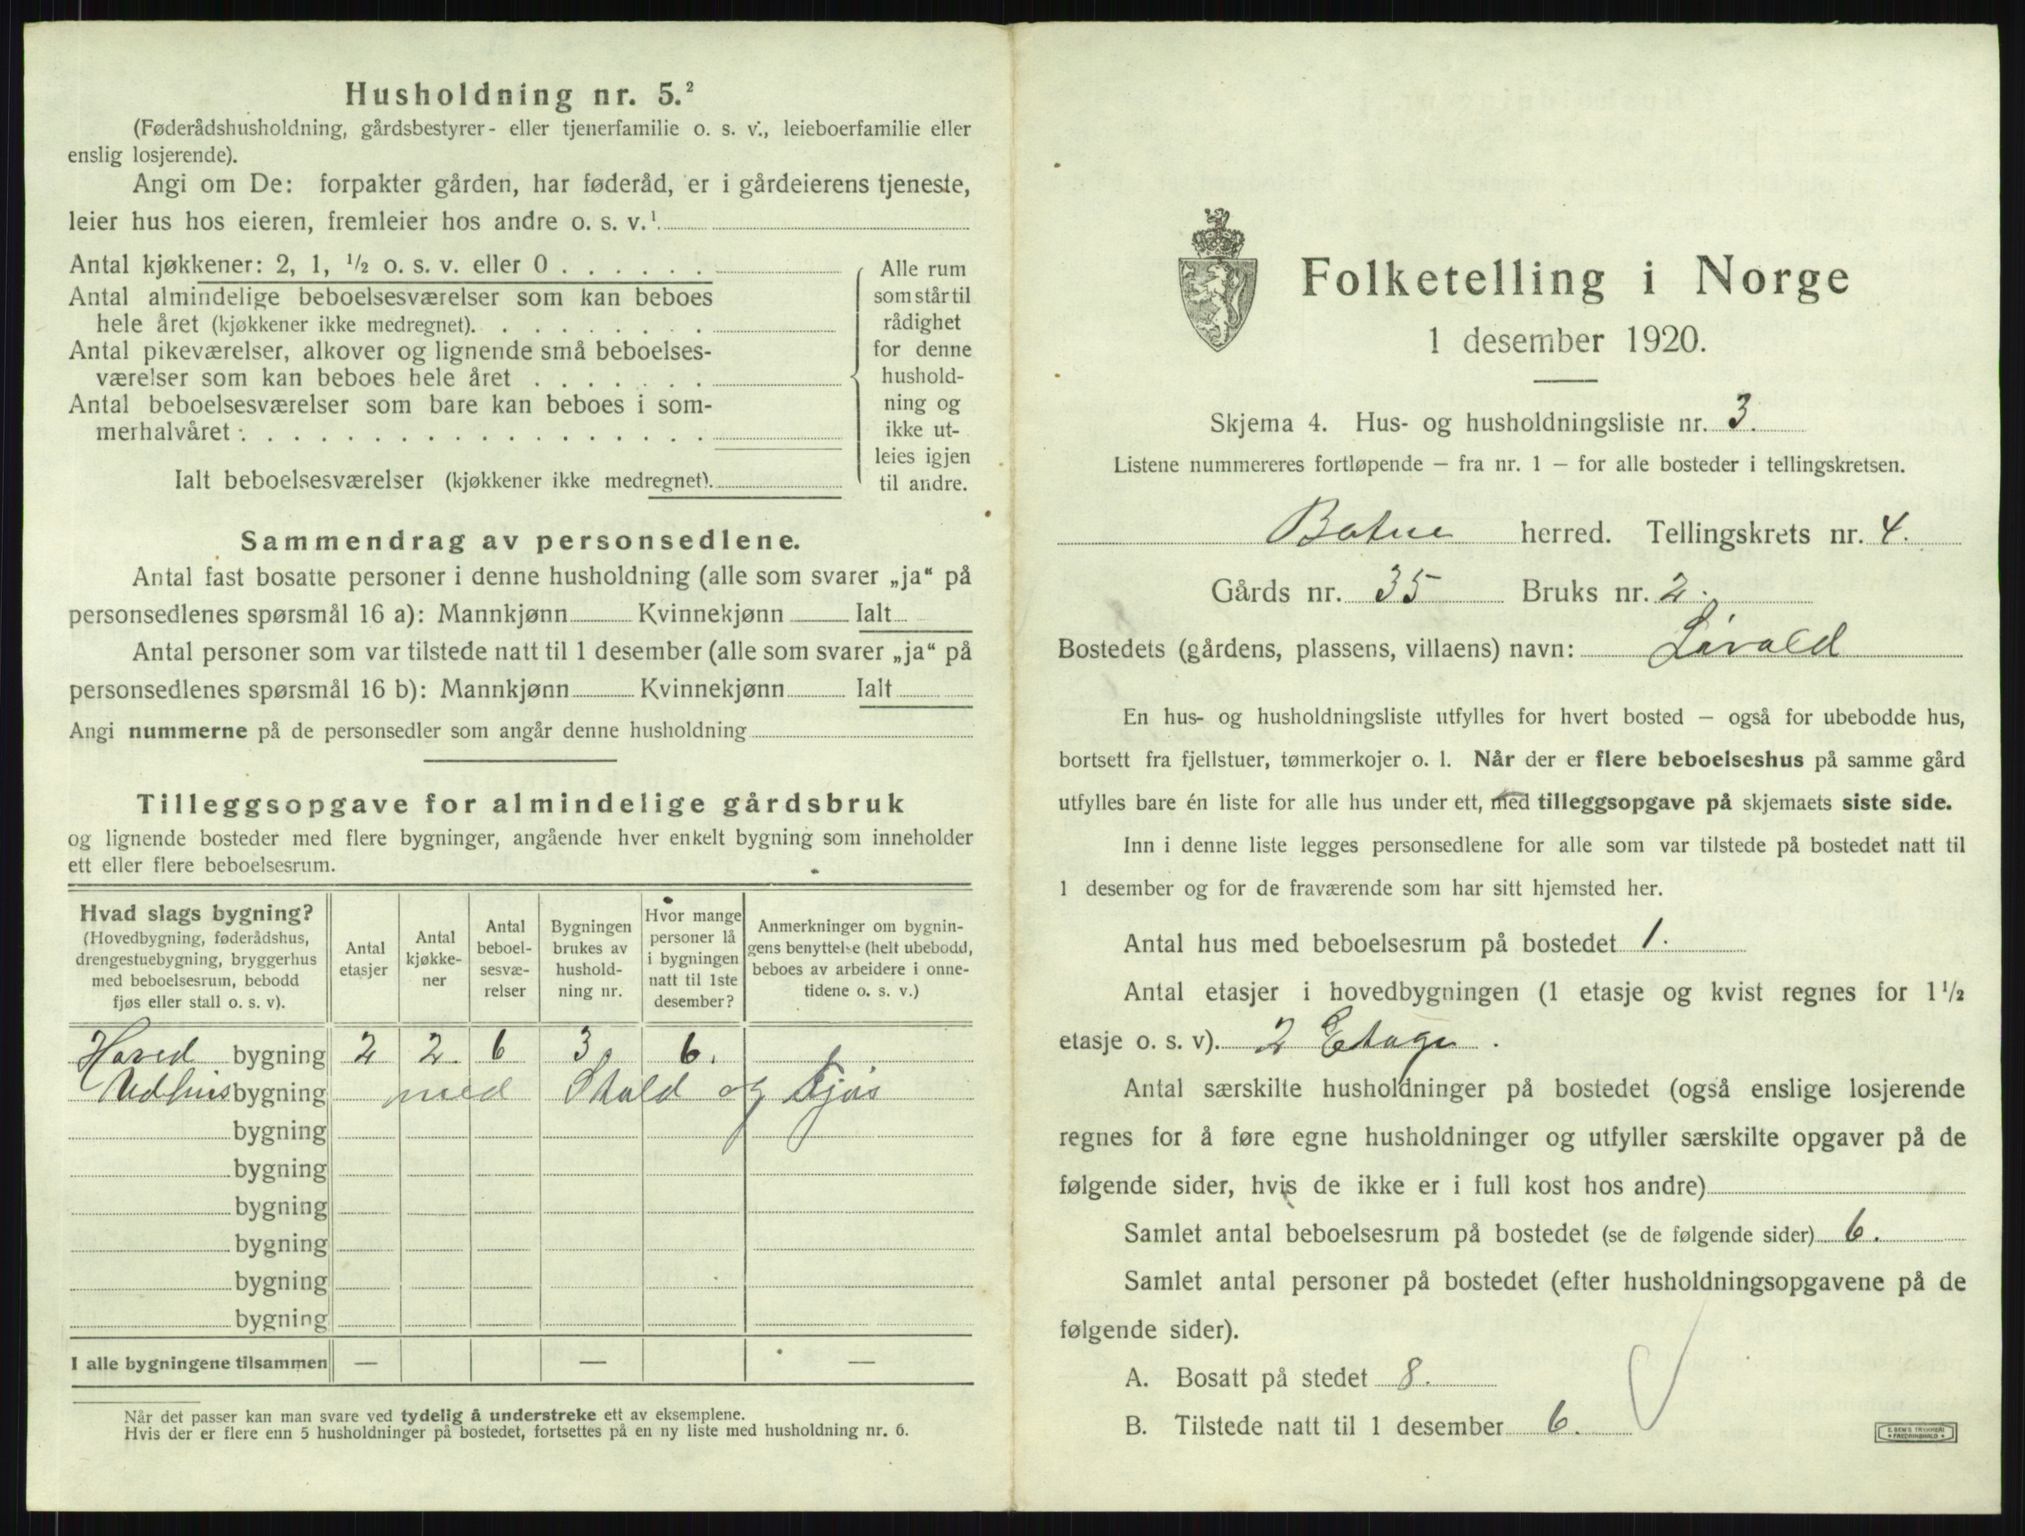 Husholdning nr. 5.²
(Føderådshusholdning, gårdsbestyrer- eller tjenerfamilie o. s. v., leieboerfamilie eller
enslig losjerende).
Angi om De: forpakter gården, har føderåd, er i gårdeierens tjeneste,
leier hus hos eieren, fremleier hos andre o. s. v.¹
Antal kjøkkener: 2, 1, ½ o. s. v. eller 0 . . . . . .
Antal almindelige beboelsesværelser som kan beboes
hele året (kjøkkener ikke medregnet). . . . . . . . .
Antal pikeværelser, alkover og lignende små beboelses-
værelser som kan beboes hele året . . . . . . .
Antal beboelsesværelser som bare kan beboes i som-
merhalvåret . . . . . . . . . . . . . . . . . .
Ialt beboelsesværelser (kjøkkener ikke medregnet).
Alle rum
som står til
rådighet
for denne
hushold-
ning og
ikke ut-
leies igjen
til andre.
Sammendrag av personsedlene.
Antal fast bosatte personer i denne husholdning (alle som svarer „ja“ på
personsedlenes spørsmål 16 a): Mannkjønn Kvinnekjønn Ialt
Antal personer som var tilstede natt til 1 desember (alle som svarer „ja“ på
personsedlenes spørsmål 16 b): Mannkjønn Kvinnekjønn Ialt
Angi nummerne på de personsedler som angår denne husholdning
Tilleggsopgave for almindelige gårdsbruk
og lignende bosteder med flere bygninger, angående hver enkelt bygning som inneholder
ett eller flere beboelsesrum.
Hvad slags bygning?
(Hovedbygning, føderådshus,
drengestuebygning, bryggerhus
med beboelsesrum, bebodd
fjøs eller stall o. s. v).
Antal
etasjer
Antal
kjøkke-
ner
Antal
beboel-
sesvæ-
relser
Bygningen
brukes av
hushold-
ning nr.
Hvor mange
personer lå
i bygningen
natt til 1ste
desember?
Anmerkninger om bygnin-
gens benyttelse (helt ubebodd,
beboes av arbeidere i onne-
tidene o. s. v.)
Hoved bygning 2 2 6 3 6.
Udhus bygning med Stald og Fjøs
bygning
bygning
bygning
bygning
bygning
bygning
I alle bygningene tilsammen — — —
Når det passer kan man svare ved tydelig å understreke ett av eksemplene.
Hvis der er flere enn 5 husholdninger på bostedet, fortsettes på en ny liste med husholdning nr. 6.
Folketelling i Norge
1 desember 1920.
Skjema 4. Hus- og husholdningsliste nr. 3.
Listene nummereres fortløpende – fra nr. 1 – for alle bosteder i tellingskretsen.
Botne herred. Tellingskrets nr. 4.
Gårds nr. 35 Bruks nr. 2.
Bostedets (gårdens, plassens, villaens) navn: Løvald
En hus- og husholdningsliste utfylles for hvert bosted – også for ubebodde hus,
bortsett fra fjellstuer, tømmerkojer o. l. Når der er flere beboelseshus på samme gård
utfylles bare én liste for alle hus under ett, med tilleggsopgave på skjemaets siste side.
Inn i denne liste legges personsedlene for alle som var tilstede på bostedet natt til
1 desember og for de fraværende som har sitt hjemsted her.
Antal hus med beboelsesrum på bostedet 1.
Antal etasjer i hovedbygningen (1 etasje og kvist regnes for 1½
etasje o. s. v). 2 Etage.
Antal særskilte husholdninger på bostedet (også enslige losjerende
regnes for å føre egne husholdninger og utfyller særskilte opgaver på de
følgende sider, hvis de ikke er i full kost hos andre)
Samlet antal beboelsesrum på bostedet (se de følgende sider) 6.
Samlet antal personer på bostedet (efter husholdningsopgavene på de
følgende sider).
A. Bosatt på stedet 8.
B. Tilstede natt til 1 desember 6.